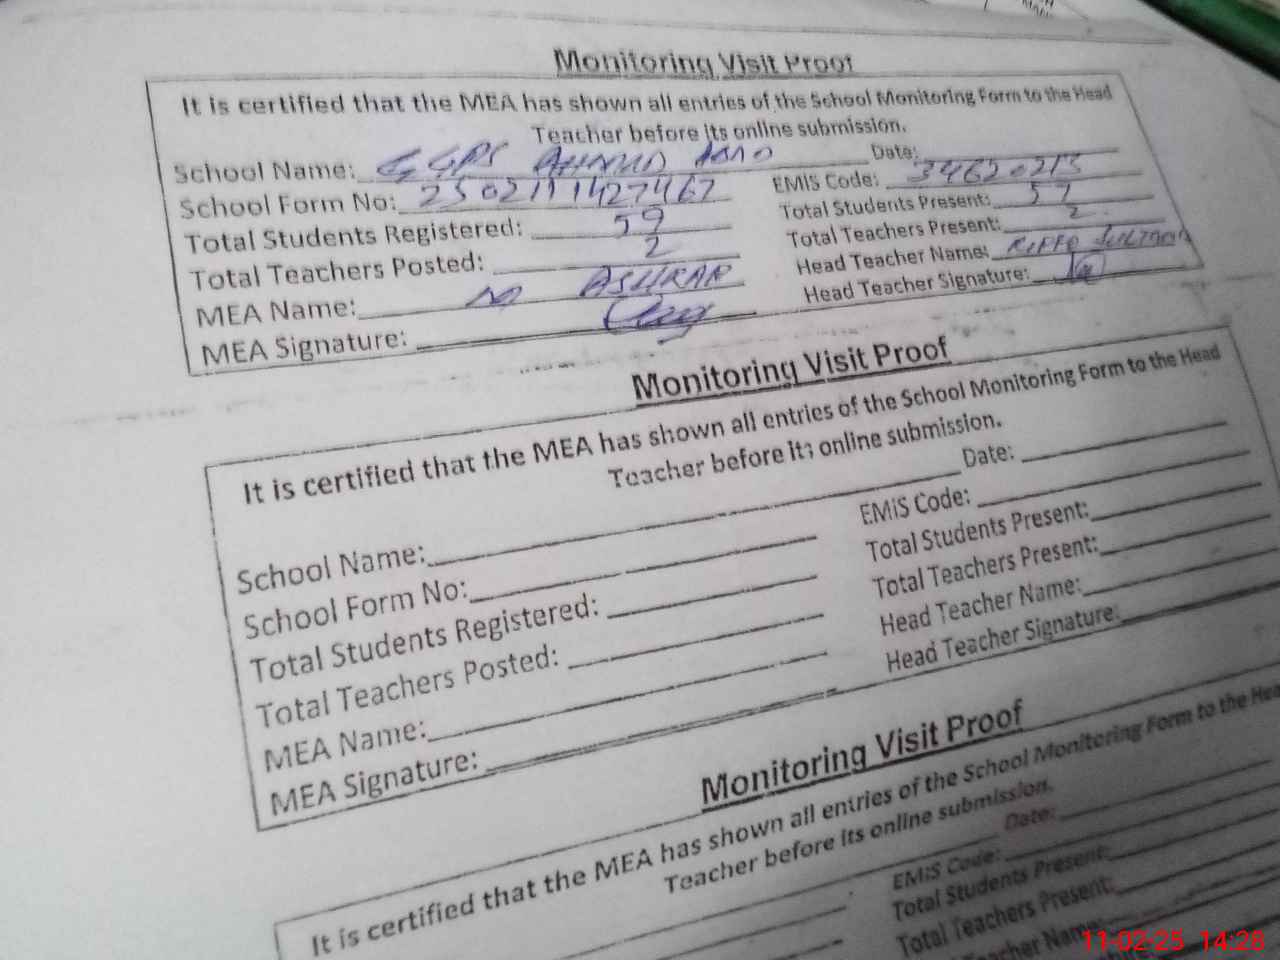 Monitoring Visit Proof
It is certified that the MEA has shown all entries of the School Monitoring Form to the Head
Teacher before its online submission.
School Name: GGPS AHMAD Date:
School Form No: 2502111427467 EMIS Code: 34620213
Total Students Registered: 59 Total Students Present: 57
Total Teachers Posted: 2 Total Teachers Present: 2
MEA Name: M ASHRAF Head Teacher Name: SULTANA
MEA Signature: Head Teacher Signature:
Monitoring Visit Proof
It is certified that the MEA has shown all entries of the School Monitoring Form to the Head
Teacher before its online submission.
School Name: Date:
School Form No: EMIS Code:
Total Students Registered: Total Students Present:
Total Teachers Posted: Total Teachers Present:
MEA Name: Head Teacher Name:
MEA Signature: Head Teacher Signature:
Monitoring Visit Proof
It is certified that the MEA has shown all entries of the School Monitoring Form to the Hea
Teacher before its online submission.
Date:
EMIS Code:
Total Students Present:
Total Teachers Present:
Teacher Name:
11-02-25 14:28